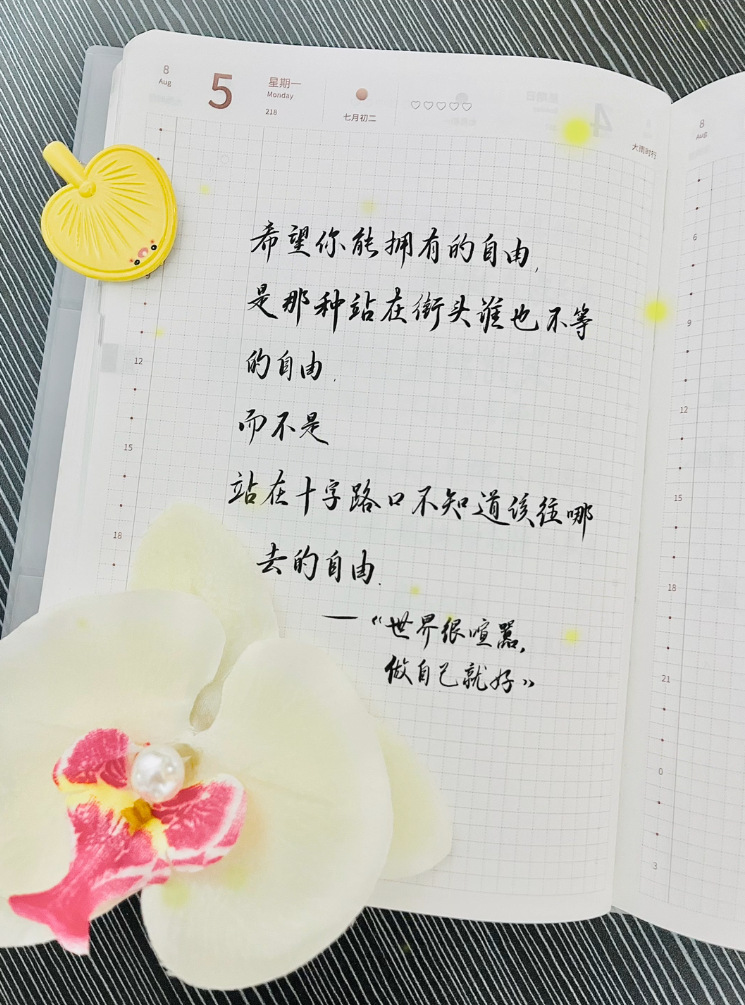 8
Aug
5
星期一
Monday
218
七月初二
大雨时行
8
Aug
希望你能拥有的自由,
是那种站在街头谁也不等
的自由.
而不是
站在十字路口不知道该往哪
去的自由.
—《世界很喧嚣,
做自己就好》
9
12
15
18
6
9
12
15
18
21
0
3